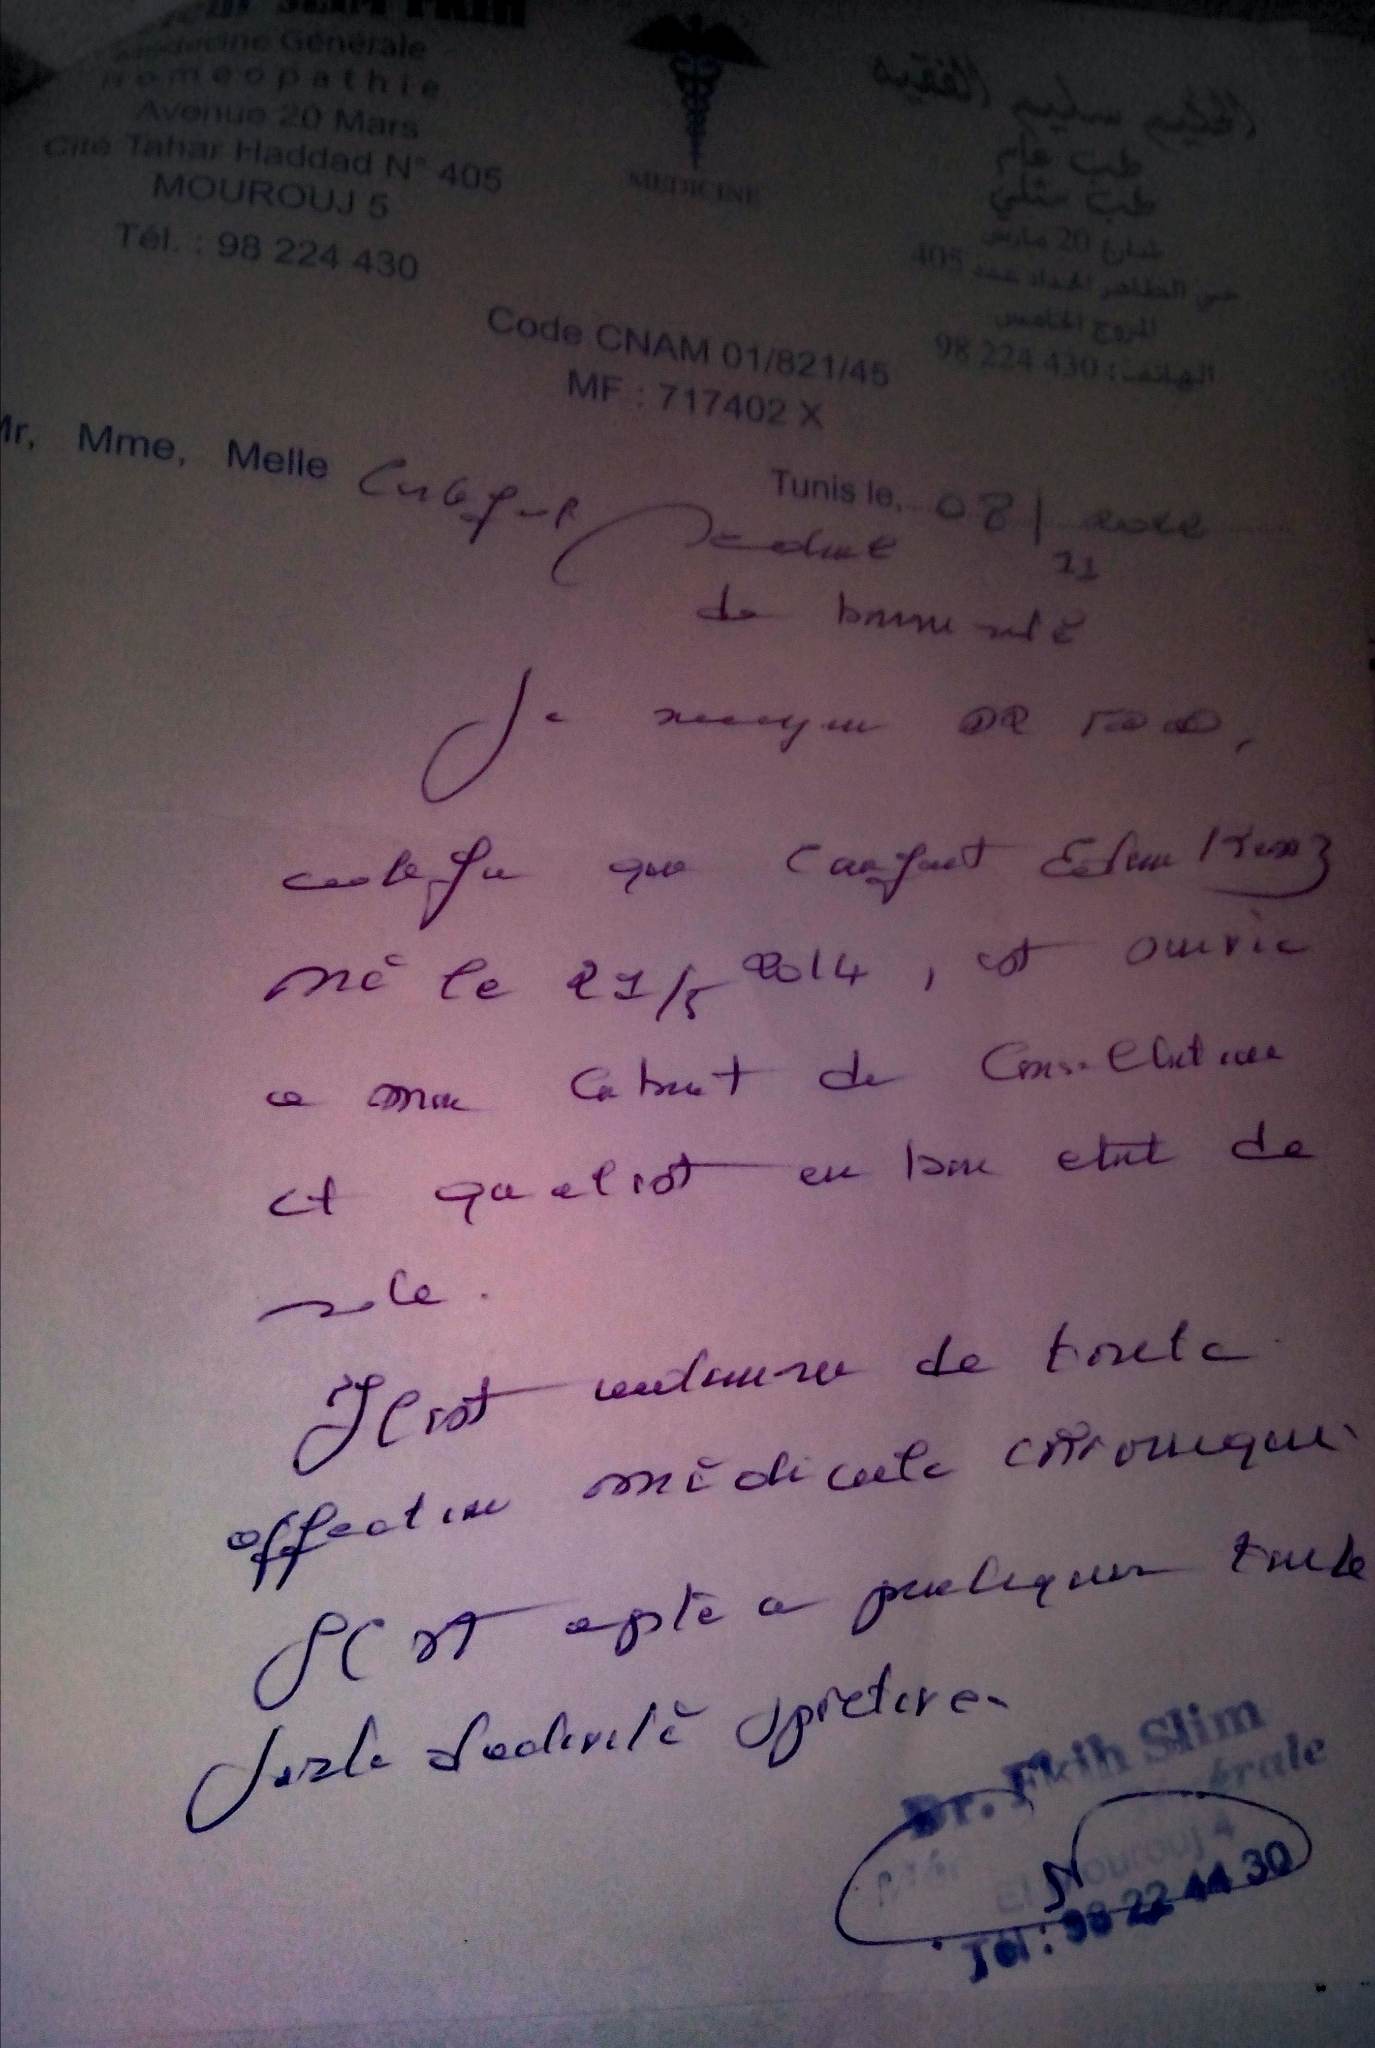 SLIM FKIH
Médecine Générale
Homéopathie
Avenue 20 Mars
Cité Tahar Haddad N° 405
MOUROUJ 5
Tél. : 98 224 430
MEDICINE
الحكيم سليم الفقيه
طب عام
طب مثلي
شارع 20 مارس
حي الطاهر الحداد عدد 405
المروج الخامس
الهاتف : 98 224 430
Code CNAM 01/821/45
MF : 717402 X
Mr, Mme, Melle Certificat
Tunis le, 08/11 2022
de bonne santé
Je soussigné DR
certifie que l'enfant
né le 21/5 2014, est
a mon cabinet de consultation
et qu'il est en bon etat de
santé.
Il est indemne de toute
affection médicale chronique
Il est apte a pratiquer toute
sorte d'activité sportive.
Dr. Fkih Slim
El Mourouj 4
Tél : 98 22 44 30